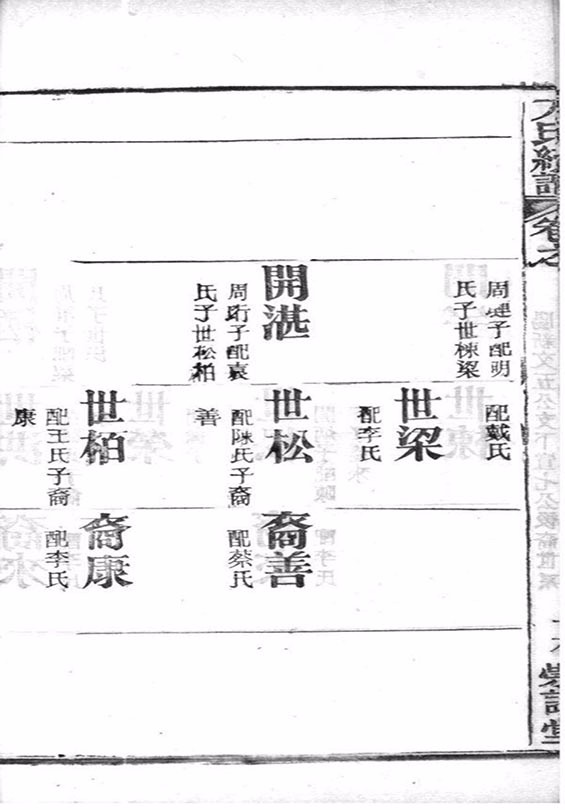 氏續譜
卷之
周
子配明
氏子世棟梁
開湛
周珩子配袁
氏子世松柏
配戴氏
世梁
配李氏
世松
配陳氏子裔
善
世柏
配王氏子裔
康
裔善
配蔡氏
裔康
配李氏